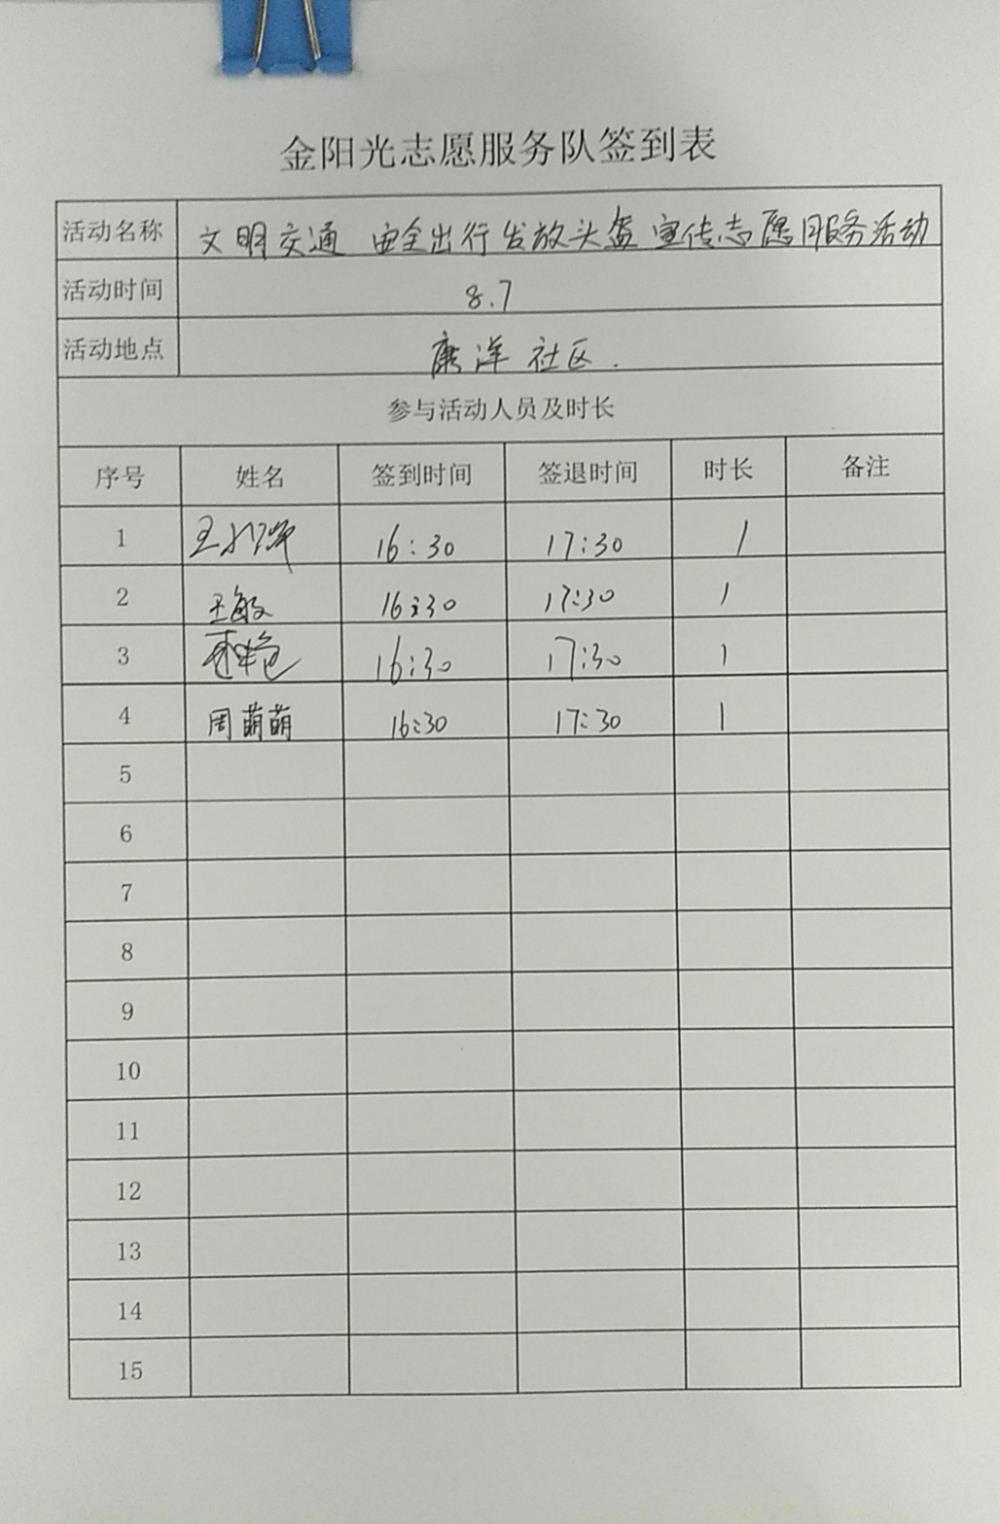 金阳光志愿服务队签到表
活动名称 文明交通 安全出行发放头盔宣传志愿服务活动
活动时间 8.7
活动地点 唐洋社区.
参与活动人员及时长
序号 姓名 签到时间 签退时间 时长 备注
1 王 16:30 17:30 1
2 王敏 16:30 17:30 1
3 16:30 17:30 1
4 周萌萌 16:30 17:30 1
5
6
7
8
9
10
11
12
13
14
15